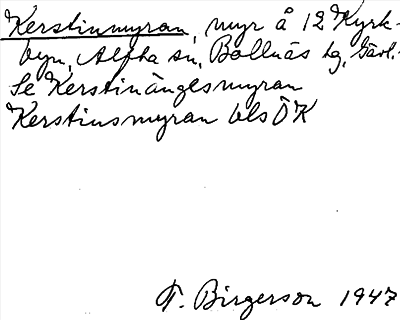 Kerstinmyran, myr å 12 Kyrk-
byn, Alfta sn, Bollnäs tg, Gävl.
Se Kerstinängesmyran
Kerstinsmyran bls ÖK
F. Birgerson 1947